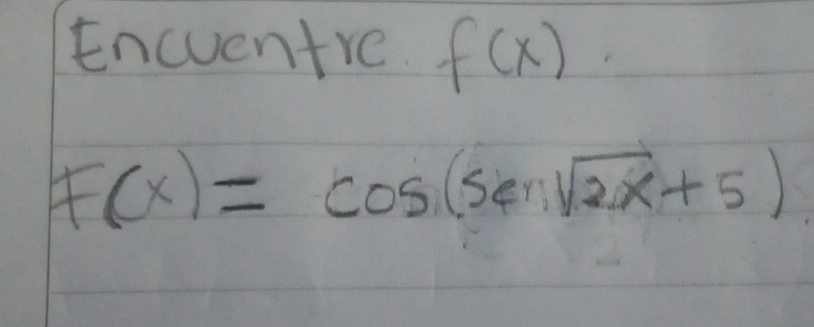 Encuentre f(x).
F(x) = cos(sen√2x + 5)